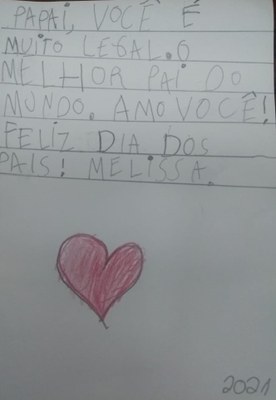 PAPAI, VOCÊ É
MUITO LEGAL. O
MELHOR PAI DO
MUNDO. AMO VOCÊ!
FELIZ DIA DOS
PAIS! MELISSA.
2021